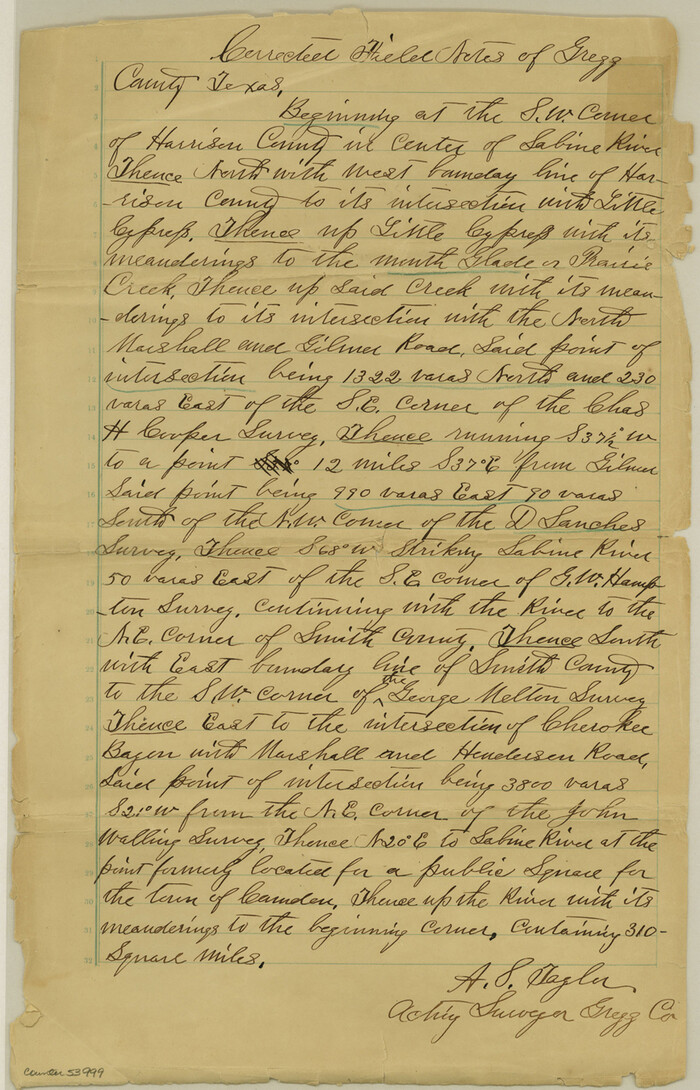 Corrected Field Notes of Gregg
County Texas,
Beginning at the S.W. Corner
of Harrison County in center of Sabine River
Thence North with west bounday line of Har-
-rison County to its intersection with Little
Cypress, Thence up Little Cypress with its
meanderings to the mouth Glade or Prairie
Creek, Thence up Said Creek with its mean-
-derings to its intersection with the North
Marshall and Gilmer Road, Said point of
intersection being 1322 varas North and 230
varas East of the S.E. Corner of the Chas
H Cooper Survey, Thence running S 37½° W
to a point 12 miles S 37° E from Gilmer
Said point being 990 varas East 90 varas
South of the N.W. Corner of the D Sanches
Survey, Thence S 68° W Striking Sabine River
50 varas East of the S.E. corner of G.W. Hamp-
-ton Survey, continuing with the River to the
N.E. Corner of Smith County, Thence South
with East boundary line of Smith County
to the S.W. Corner of the George Melton Survey
Thence East to the intersection of Cherokee
Bagon with Marshall and Henderson Road,
Said point of intersection being 3800 varas
S 21° W from the N.E. Corner of the John
Walling Survey, Thence N 20° E to Sabine River at the
point formerly located for a public Square for
the town of Camden, Thence up the River with its
meanderings to the beginning Corner, Containing 310-
Square miles,
A. S. Taylor
Acting Surveyor Gregg Co
Counter 53999